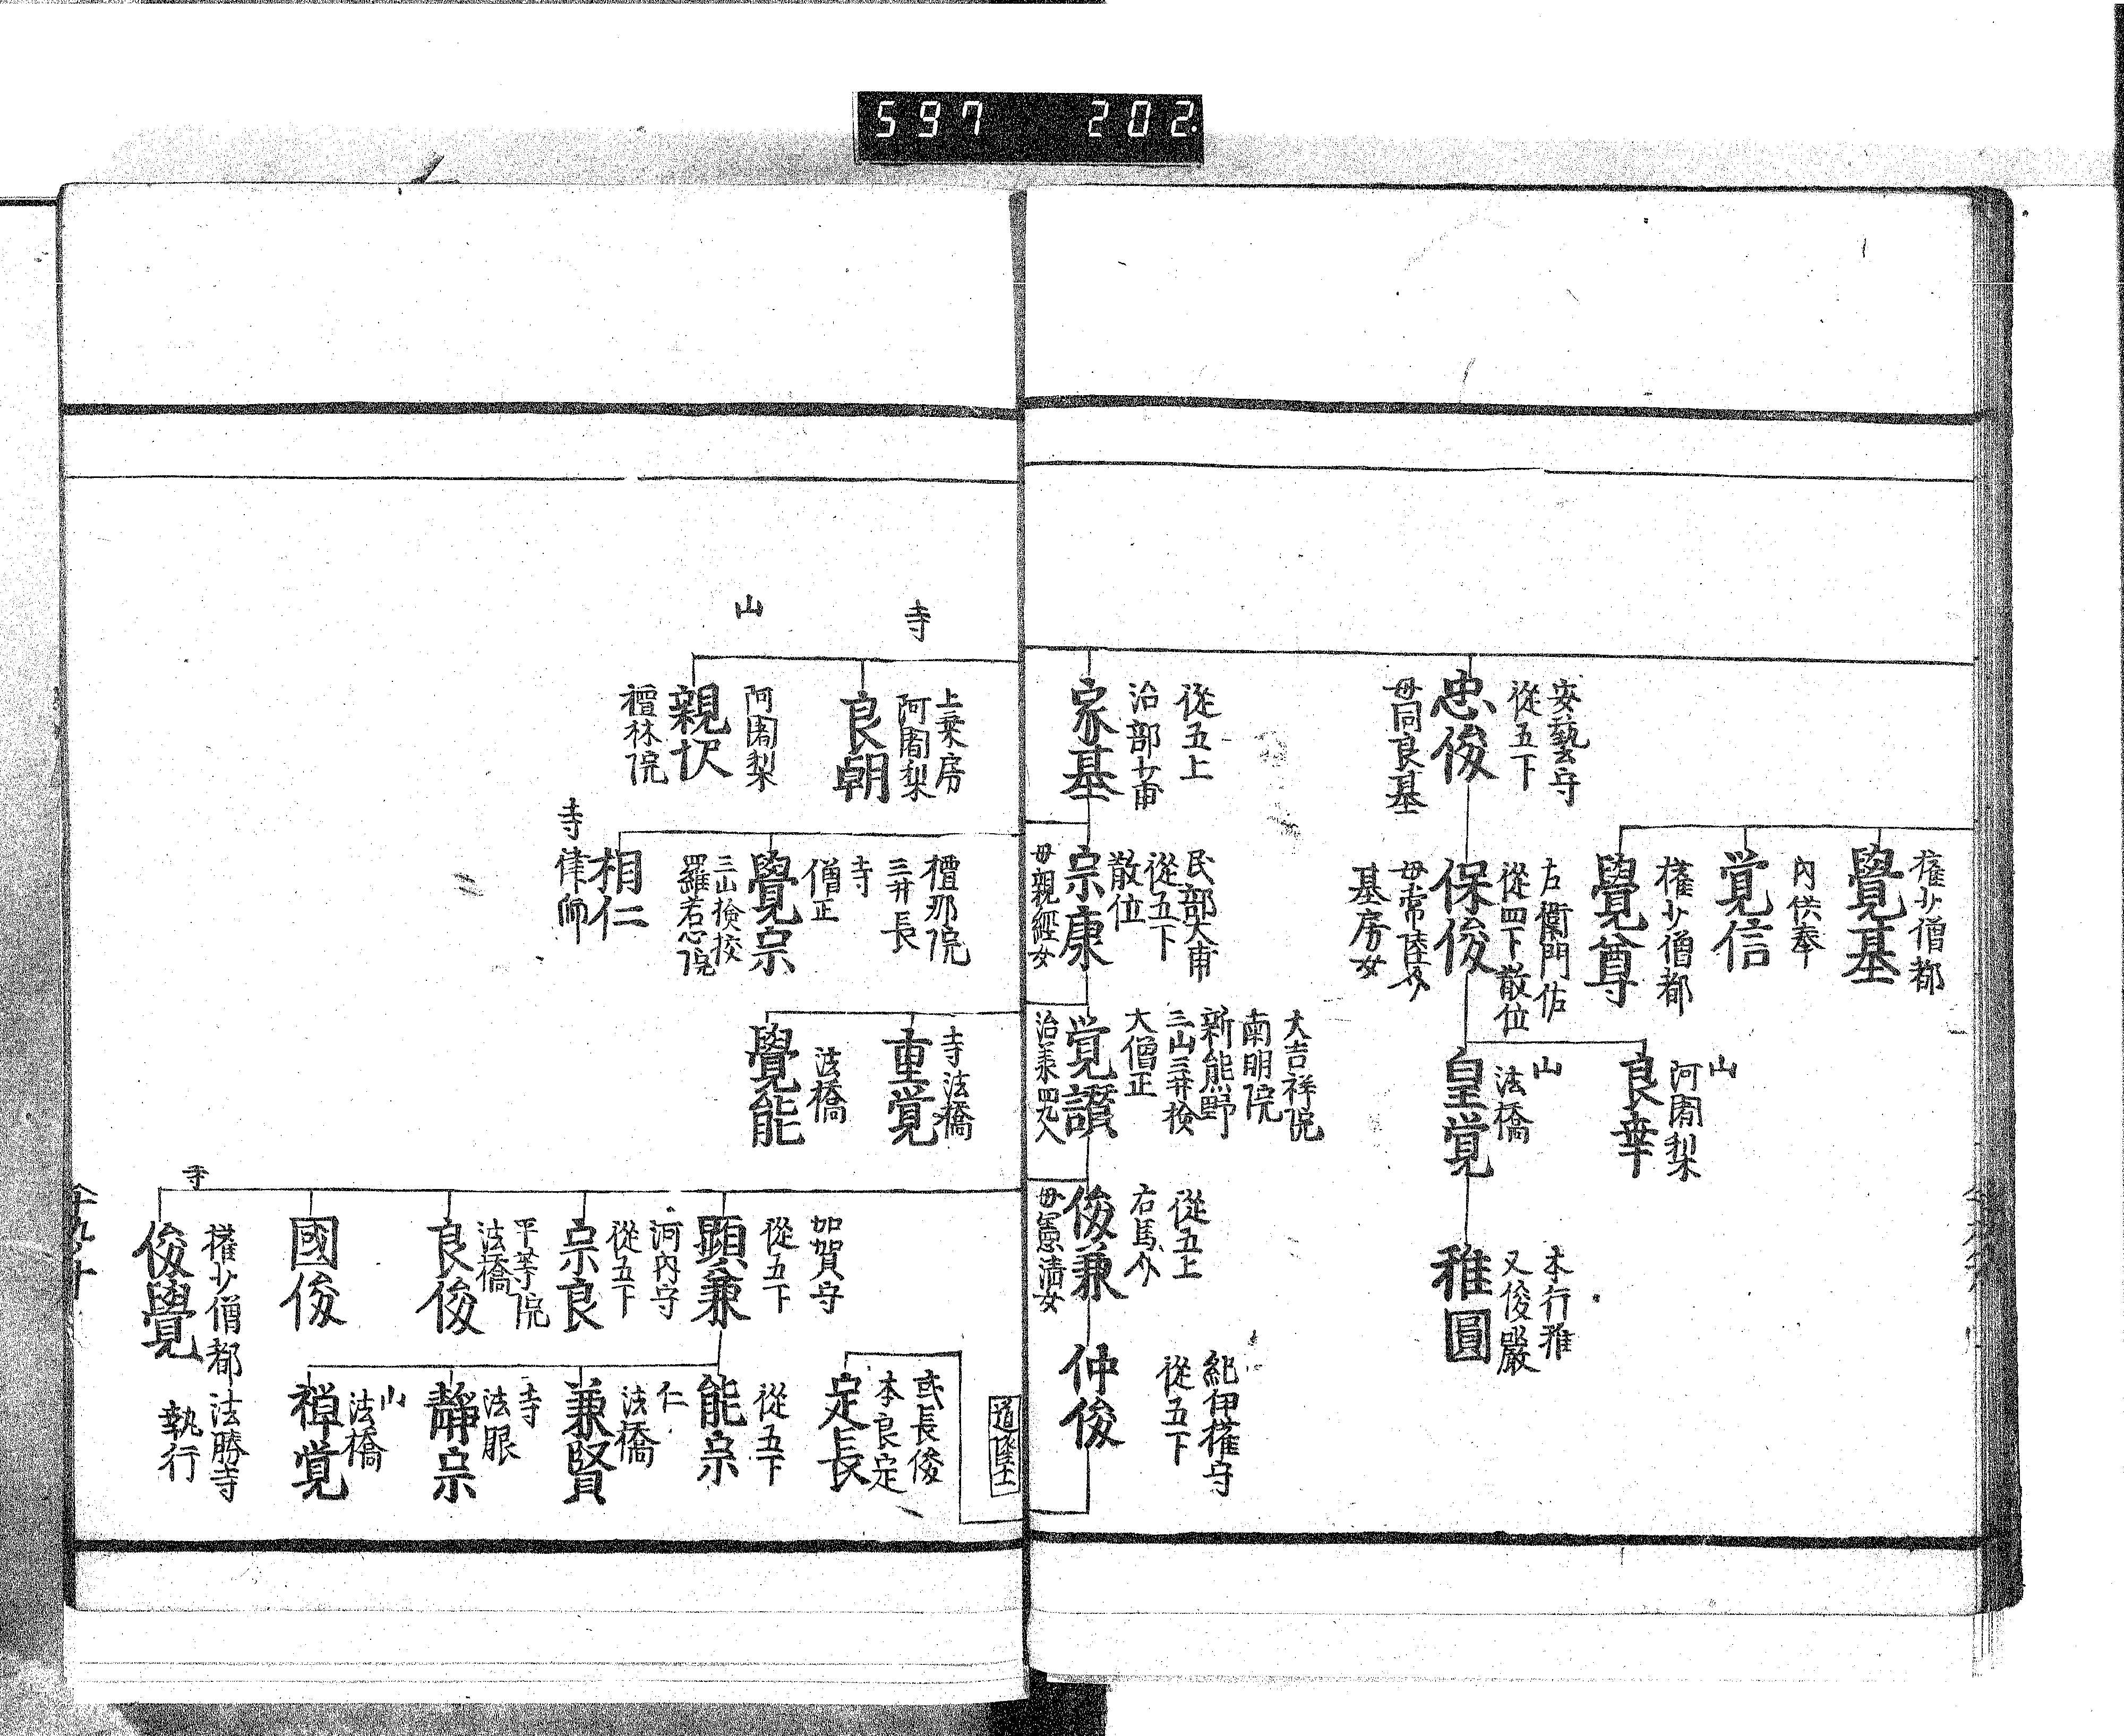 597 202
權少僧都
覺基
内供奉
覚信
權少僧都
覺尊
安藝守
從五下
忠俊
母同良基
左衛門佐
從四下散位
保俊
母常陸介
基房女
山
阿闍梨
良幸
山
法橋
皇覚
本行雅
又俊嚴
稚圓
從五上
治部少甫
家基
民部大甫
從五下
散位
宗康
母親經女
大吉祥院
南明院
新熊野
三山三井檢
大僧正
覚讃
治承四九入
從五上
右馬介
俊兼
母憲清女
紀伊權守
從五下
仲俊
道隆士
寺
上乗房
阿闍梨
良朝
山
阿闍梨
親
檀林院
檀那院
三井長
寺
僧正
覺宗
三山檢挍
羅惹院
相仁
寺律師
寺法橋
重覚
法橋
覺能
加賀守
從五下
顕兼
河内守
從五下
宗良
平等院
法橋
良俊
國俊
寺
權少僧都法勝寺
執行
俊覺
或長俊
本良定
定長
從五下
能宗
仁
法橋
兼賢
寺
法眼
靜宗
山
法橋
禅覚